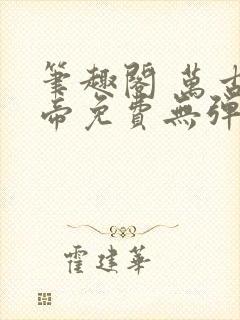 筆趣閣 萬古
帝免費無彈
霍建華